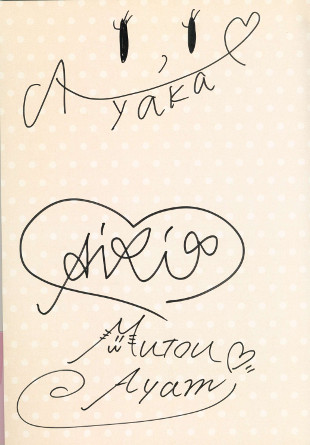 Ayaka
AiRi
Mutou
Ayami